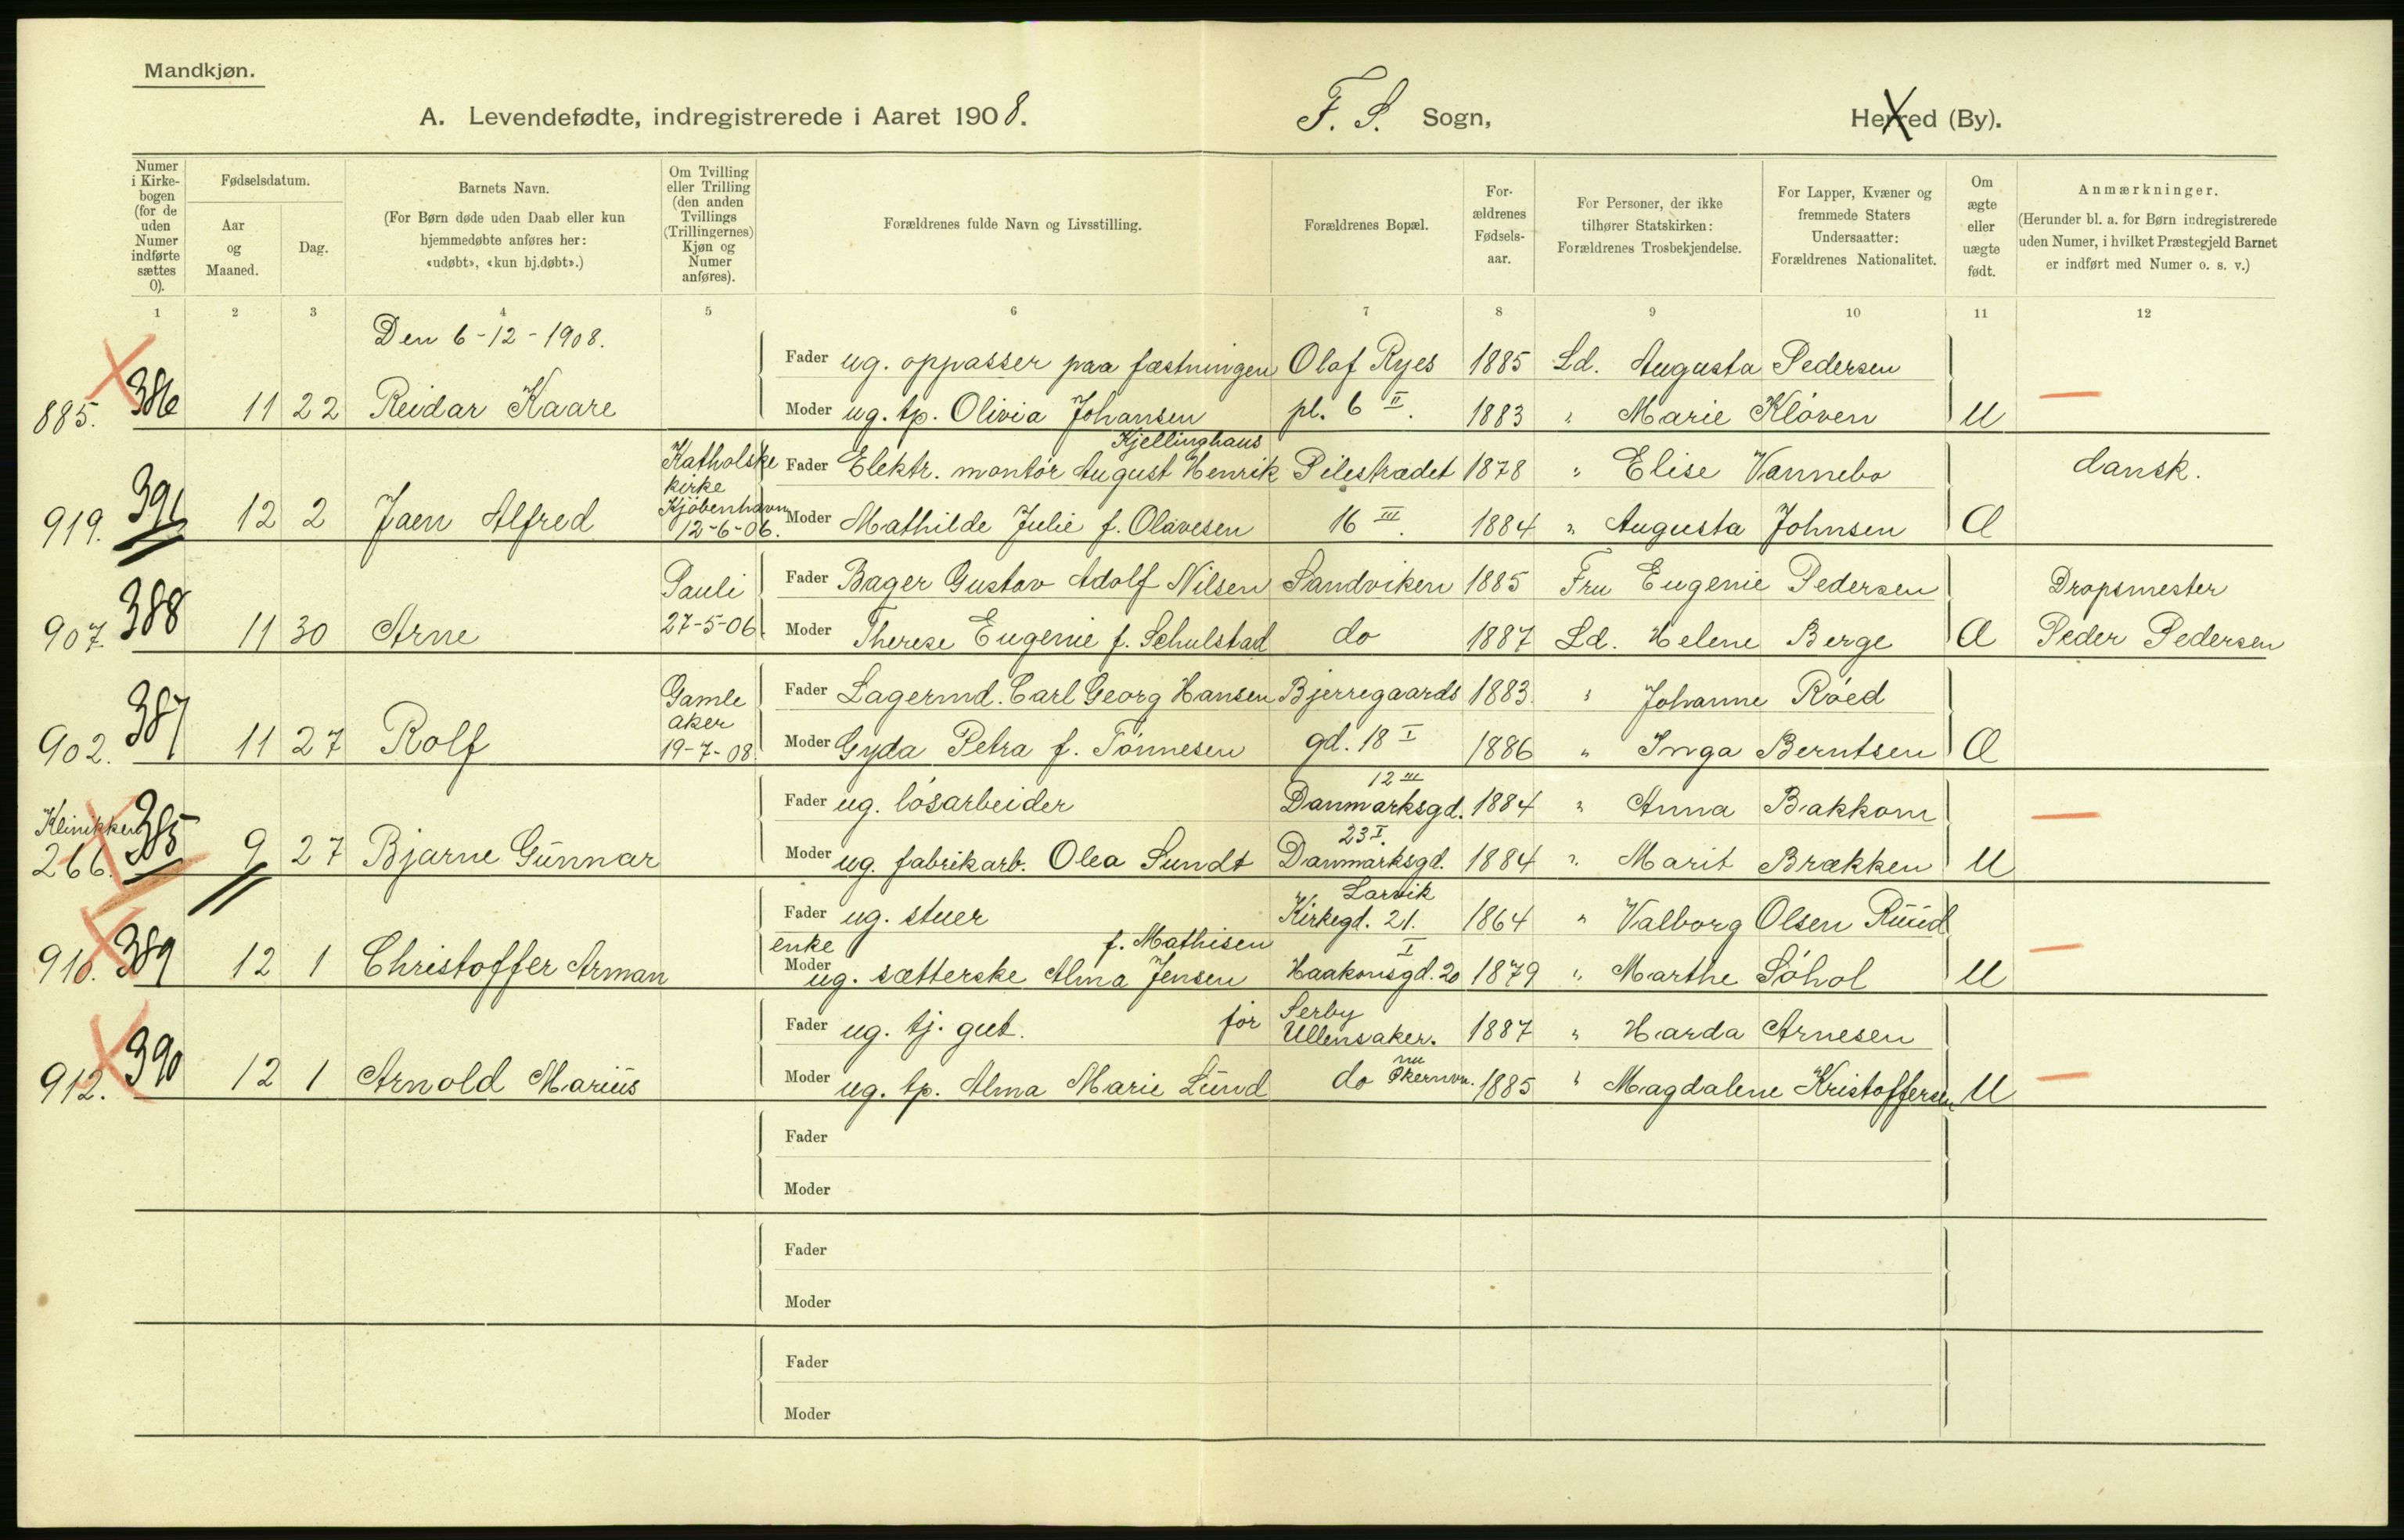 Mandkjøn.
A. Levendefødte, indregistrerede i Aaret 1908. F. S. Sogn, Herred (By).
Numer i Kirkebogen (for de uden Numer indførte sættes 0).
Fødselsdatum.
Aar og Maaned.
Dag.
Barnets Navn.
(For Børn døde uden Daab eller kun hjemmedøbte anføres her: «udøbt», «kun hj.døbt».)
Om Tvilling eller Trilling (den anden Tvillings (Trillingernes) Kjøn og Numer anføres).
Forældrenes fulde Navn og Livsstilling.
Forældrenes Bopæl.
Forældrenes Fødselsaar.
For Personer, der ikke tilhører Statskirken: Forældrenes Trosbekjendelse.
For Lapper, Kvæner og fremmede Staters Undersaatter: Forældrenes Nationalitet.
Om ægte eller uægte født.
Anmærkninger.
(Herunder bl. a. for Børn indregistrerede uden Numer, i hvilket Præstegjeld Barnet er indført med Numer o. s. v.)
1 2 3 4 5 6 7 8 9 10 11 12
Den 6-12-1908.
Fader ug. oppasser paa fæstningen Olaf Ryes 1885 Ld. Augusta Pedersen
885. 386 11 22 Reidar Kaare Moder ug. tp. Olivia Johansen pl. 6 II. 1883 " Marie Kløven U —
Kjellinghaus
Katholske kirke Fader Elektr. montør August Henrik Pilestrædet 1878 " Elise Vannebo dansk.
919. 391 12 2 Jaen Alfred Kjøbenhavn 12-6-06. Moder Mathilde Julie f. Olavesen 16 III. 1884 " Augusta Johnsen Æ
Pauli Fader Bager Gustav Adolf Nilsen Sandviken 1885 Fru Eugenie Pedersen Dropsmester
907. 388 11 30 Arne 27-5-06. Moder Therese Eugenie f. Schulstad do 1887 Ld. Helene Berge Æ Peder Pedersen
Gamle aker Fader Lagermd. Carl Georg Hansen Bjerregaards 1883. " Johanne Røed
902. 387 11 27 Rolf 19-7-08. Moder Gyda Petra f. Tønnesen gd. 18 I 1886 " Inga Berntsen Æ
12 III
Fader ug. løsarbeider Danmarksgd. 1884 " Anna Bakkom
Klinikken 23 I.
266. 385 9 27 Bjarne Gunnar Moder ug. fabrikarb. Olea Sundt Danmarksgd. 1884 " Marit Brækken U —
Larvik
Fader ug. stuer Kirkegd. 21. 1864 " Valborg Olsen Ruud
enke f. Mathisen I
910. 389 12 1 Christoffer Arman Moder ug. sætterske Alma Jensen Haakonsgd. 20 1879 " Marthe Søhol U —
Fader ug. tj. gut. før Serby Ullensaker. 1887 " Harda Arnesen
nu
912. 390 12 1 Arnold Marius Moder ug. tp. Alma Marie Lund do Økernvn. 1885 " Magdalene Kristoffersen U —
Fader
Moder
Fader
Moder
Fader
Moder